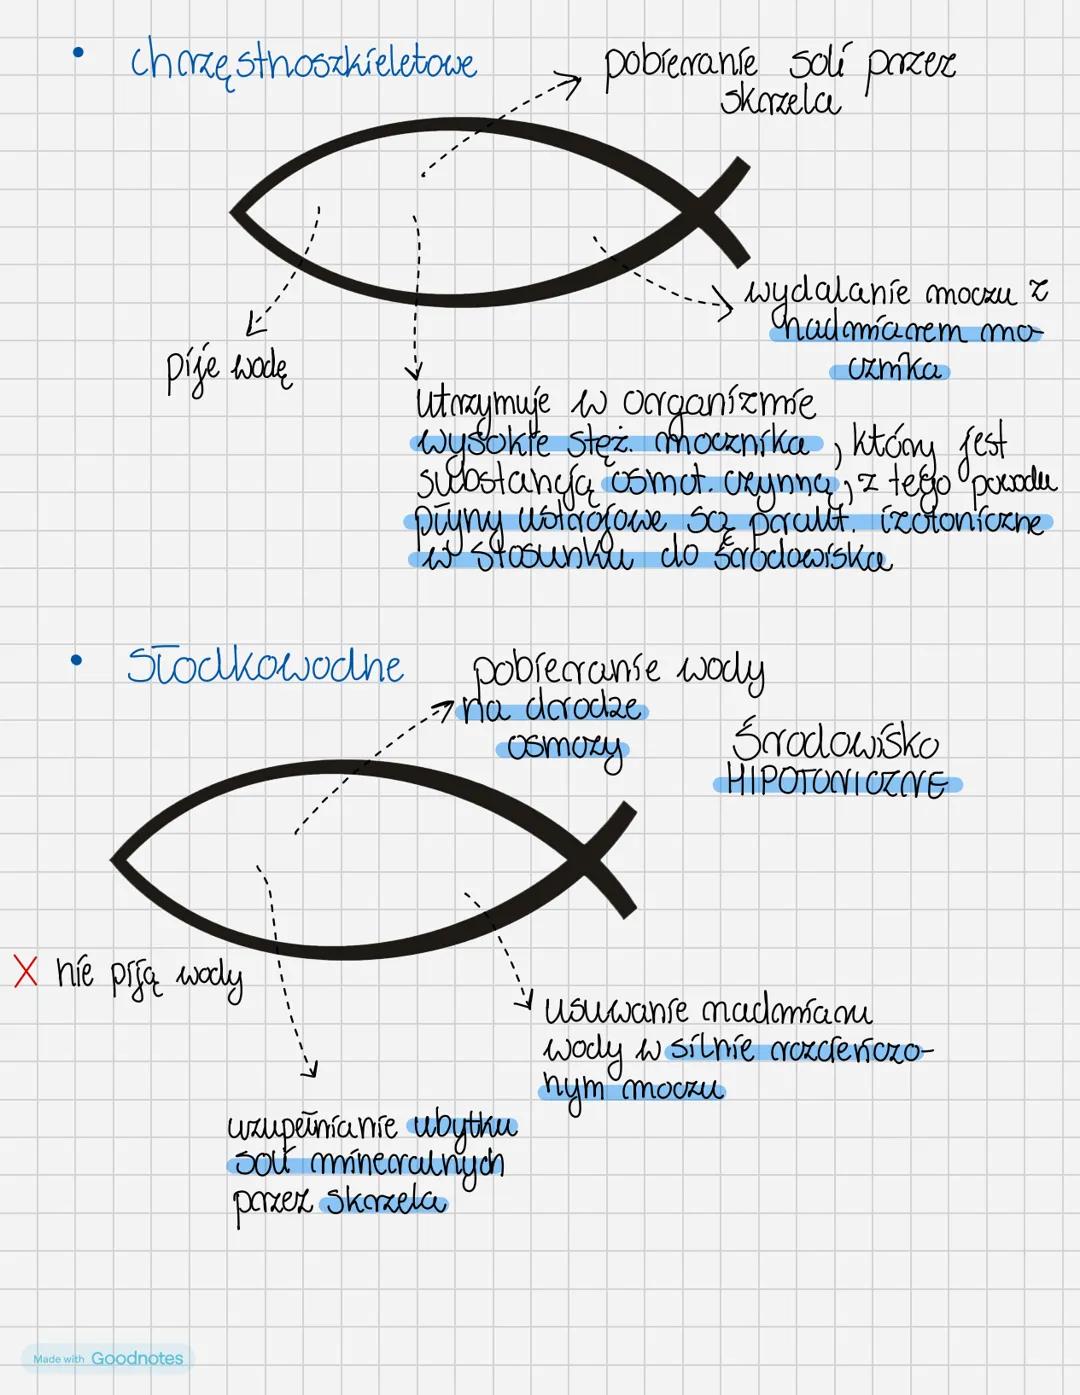 • chrzęstnoszkieletowe
pobieranie soli przez
skrzela
wydalanie moczu z
nadmiarem mo-
cznika
pije wodę
utrzymuje w organizmie
wysokie stęż. mocznika, który jest
substancją osmot. czynną, z tego powodu
płyny ustrojowe są prawt. izotoniczne
w stosunku do środowiska
• Słodkowodne
pobieranie wody
na drodze
osmozy
Środowisko
HIPOTONICZNE
X nie piją wody
usuwanie nadmiaru
wody w silnie rozcieńczo-
nym moczu
uzupełnianie ubytku
soli mineralnych
przez skrzela
Made with Goodnotes